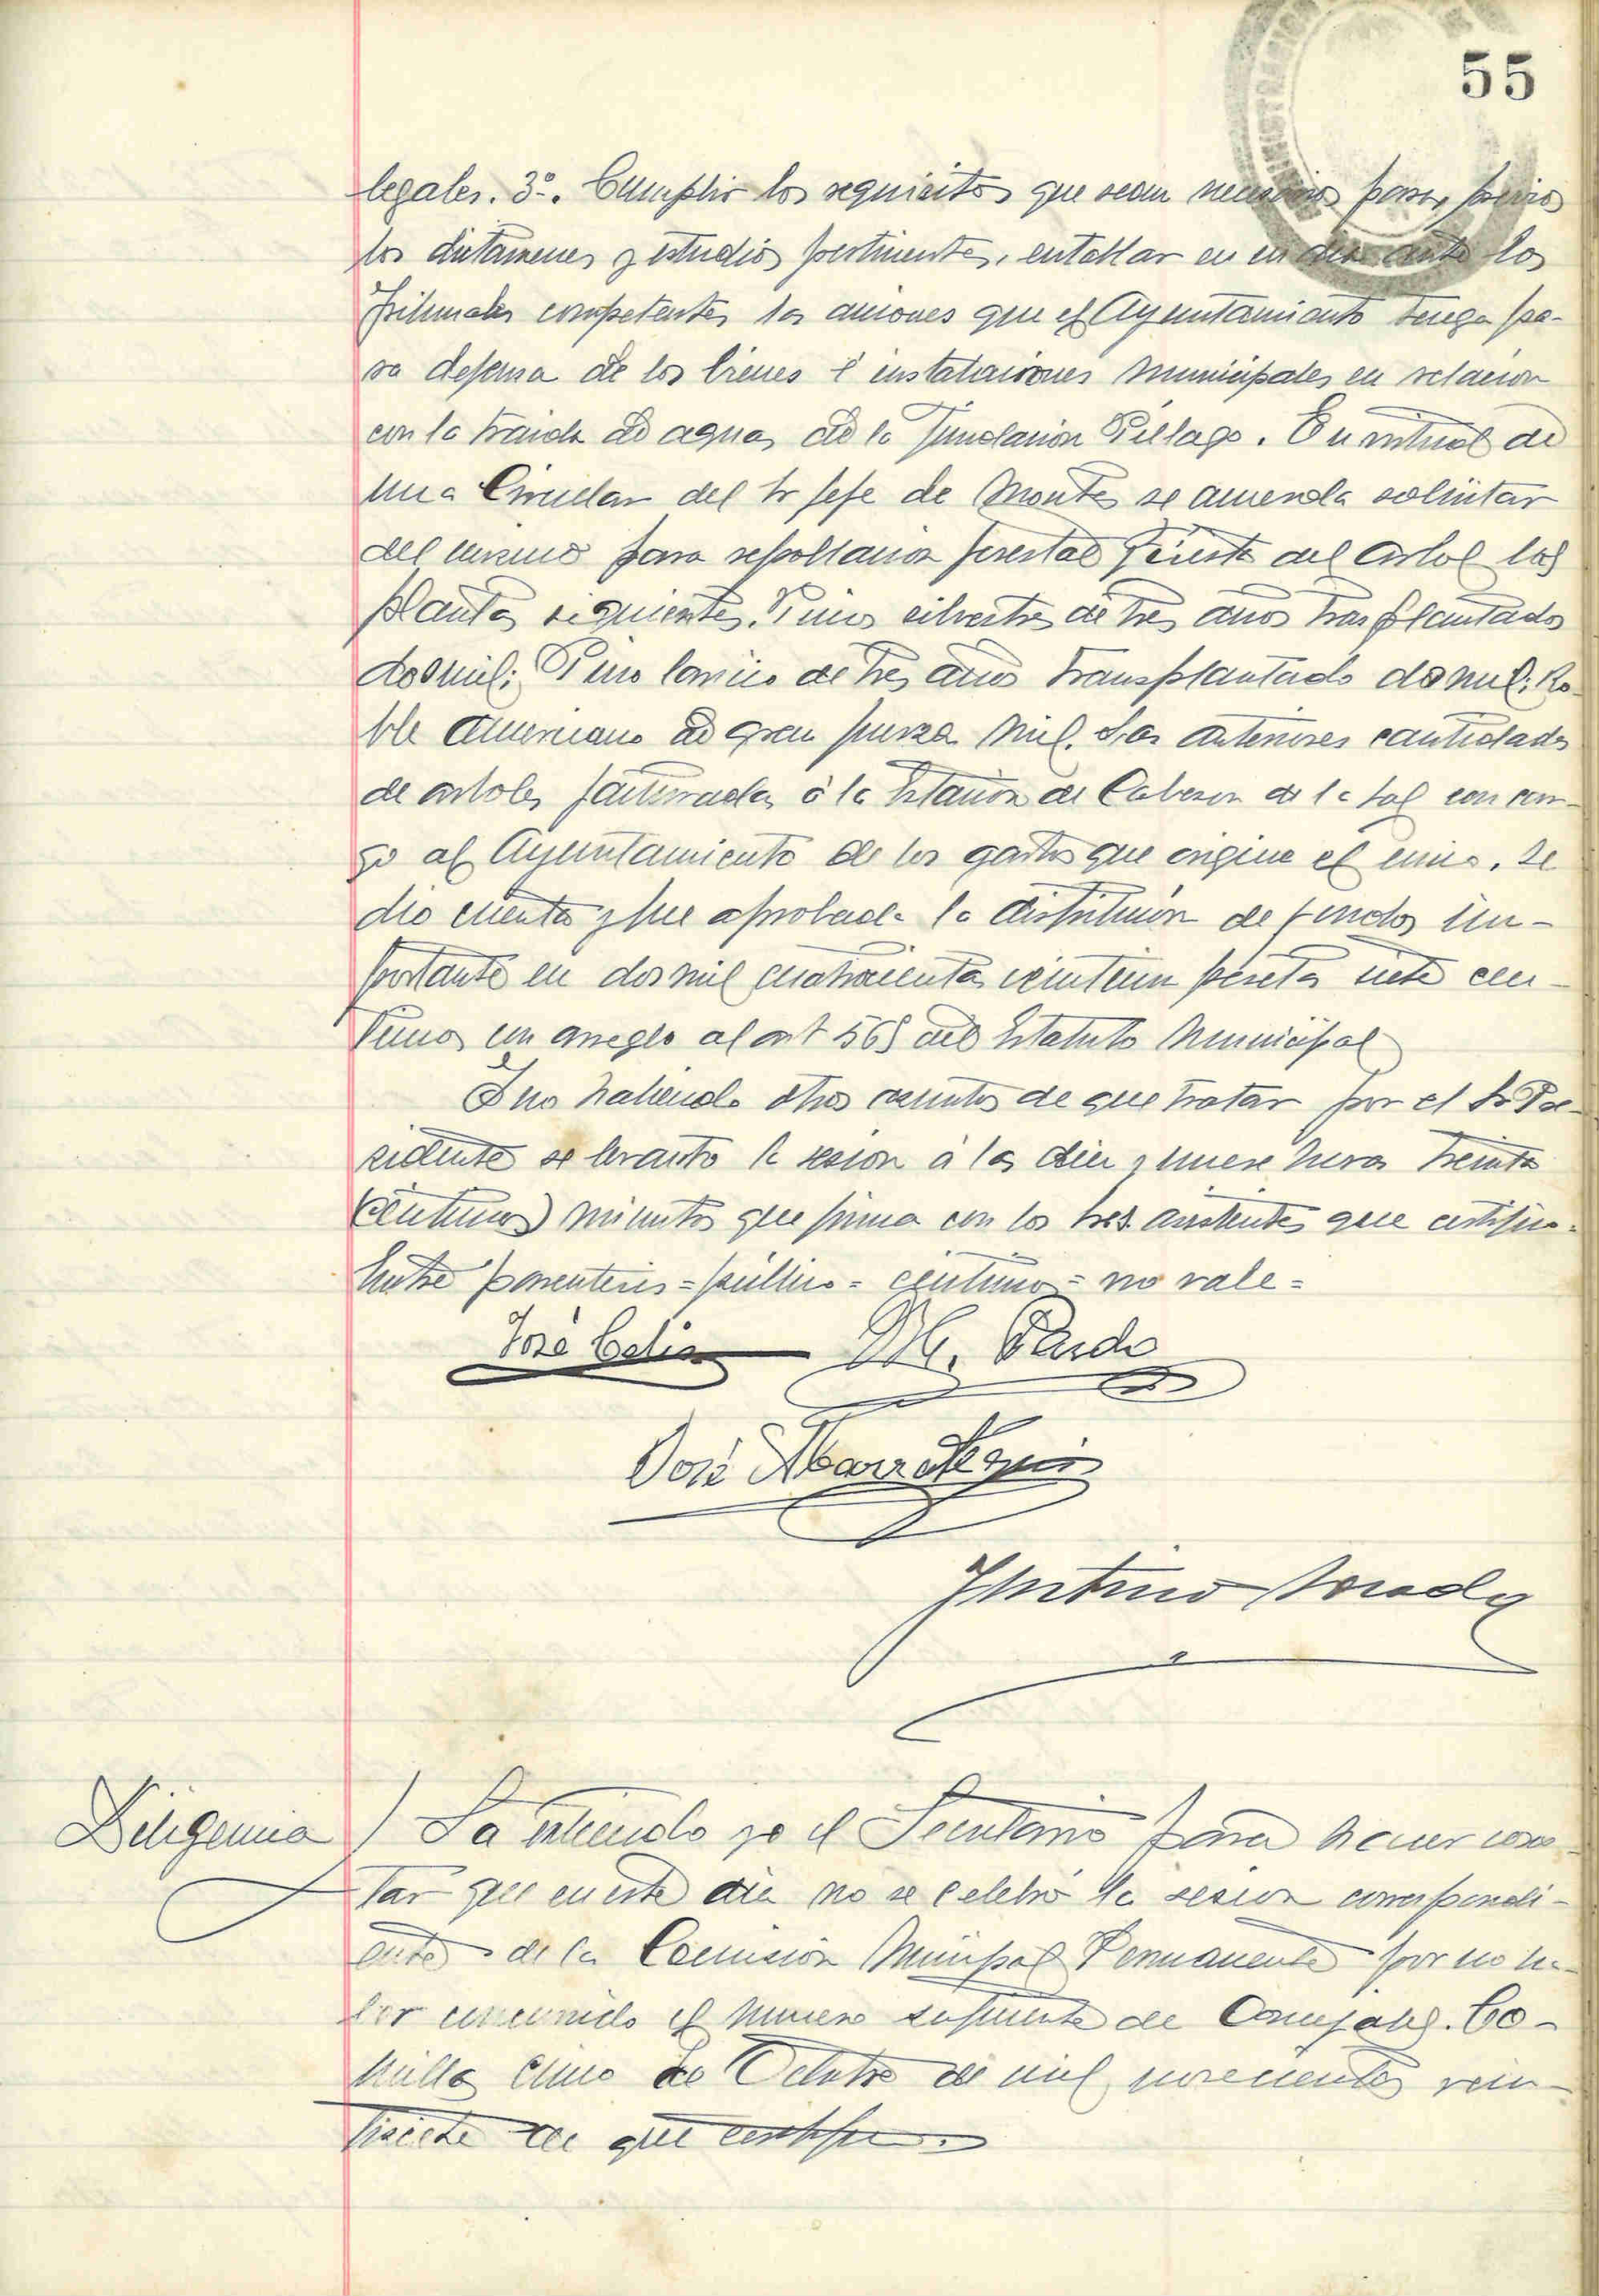 55
legales. 3º. Cumplir los requisitos que sean necesarios para, previos
los dictamenes y estudios pertinentes, entablar en en ante los
Tribunales competentes las acciones que el Ayuntamiento tenga pa-
ra defensa de los bienes é instalaciones municipales en relacion
con la traida de aguas de la Fundacion Piélago. En virtud de
una Circular del Sr Jefe de Montes se acuerda solicitar
del mismo para repoblacion forestal y fiesta del arbol las
plantas siguientes. Pinos silvestres de tres años trasplantados
dos mil; Pino laricio de tres años transplantado dos mil; Ro-
ble americano de gran pureza mil. Las anteriores cantidades
de arboles facturadas á la Estacion de Cabezon de la Sal con car-
go al Ayuntamiento de los gastos que origine el envio. Se
dio cuenta y fue aprobada la distribucion de fondos im-
portante en dos mil cuatrocientas veintiun pesetas siete cen-
timos con arreglo al art 569 del Estatuto Municipal
Y no habiendo otros asuntos de que tratar por el Sr Pre-
sidente se levanto la sesion á las diez y nueve horas treinta
(centimos) minutos que firma con los tres asistentes que certifico.
Entre parentesis = público = centimos = no vale =
José Celis M. Pardo
José Abarrategui
Diligencia) La extiendo yo el Secretario para hacer cons-
tar que en este dia no se celebró la sesion correspondi-
ente de la Comision Municipal Permanente por no ha-
ber concurrido el numero suficiente de Concejales. Co-
millas cinco de Octubre de mil novecientos vein-
tisiete de que certifico.